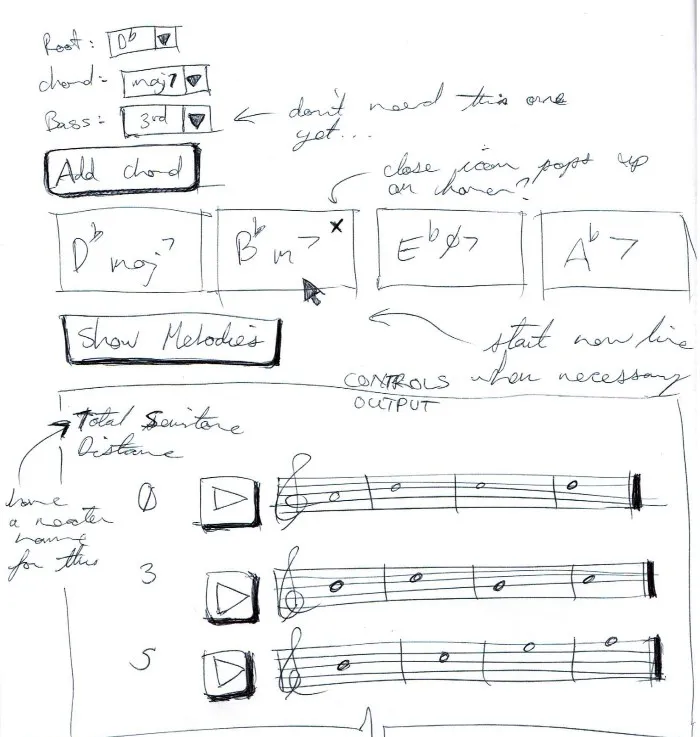 Root: D♭
chord: maj7
Bass: 3rd
don't need this one
yet...
Add chord
close icon pops up
on hover?
D♭ maj7
B♭ m7
x
E♭ø7
A♭7
Show Melodies
start new line
when necessary
CONTROLS
OUTPUT
Total Semitone
Distance
have
a neater
name
for this
0
3
5